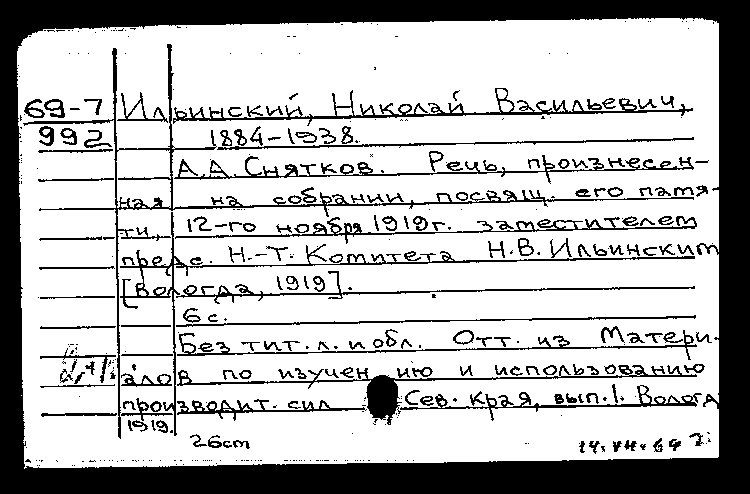 69-7 Ильинский, Николай Васильевич,
992 1884-1938.
А.А. Снятков. Речь, произнесен-
ная на собрании, посвящ. его памя-
ти, 12-го ноября 1919г. заместителем
предс. Н.-Т. Комитета Н.В. Ильинским
[Вологда, 1919].
6 с.
Без тит. л. и обл. Отт. из Матери-
алов по изучению и использованию
производит. сил Сев. Края, вып. 1. Волога
1919.
26cm